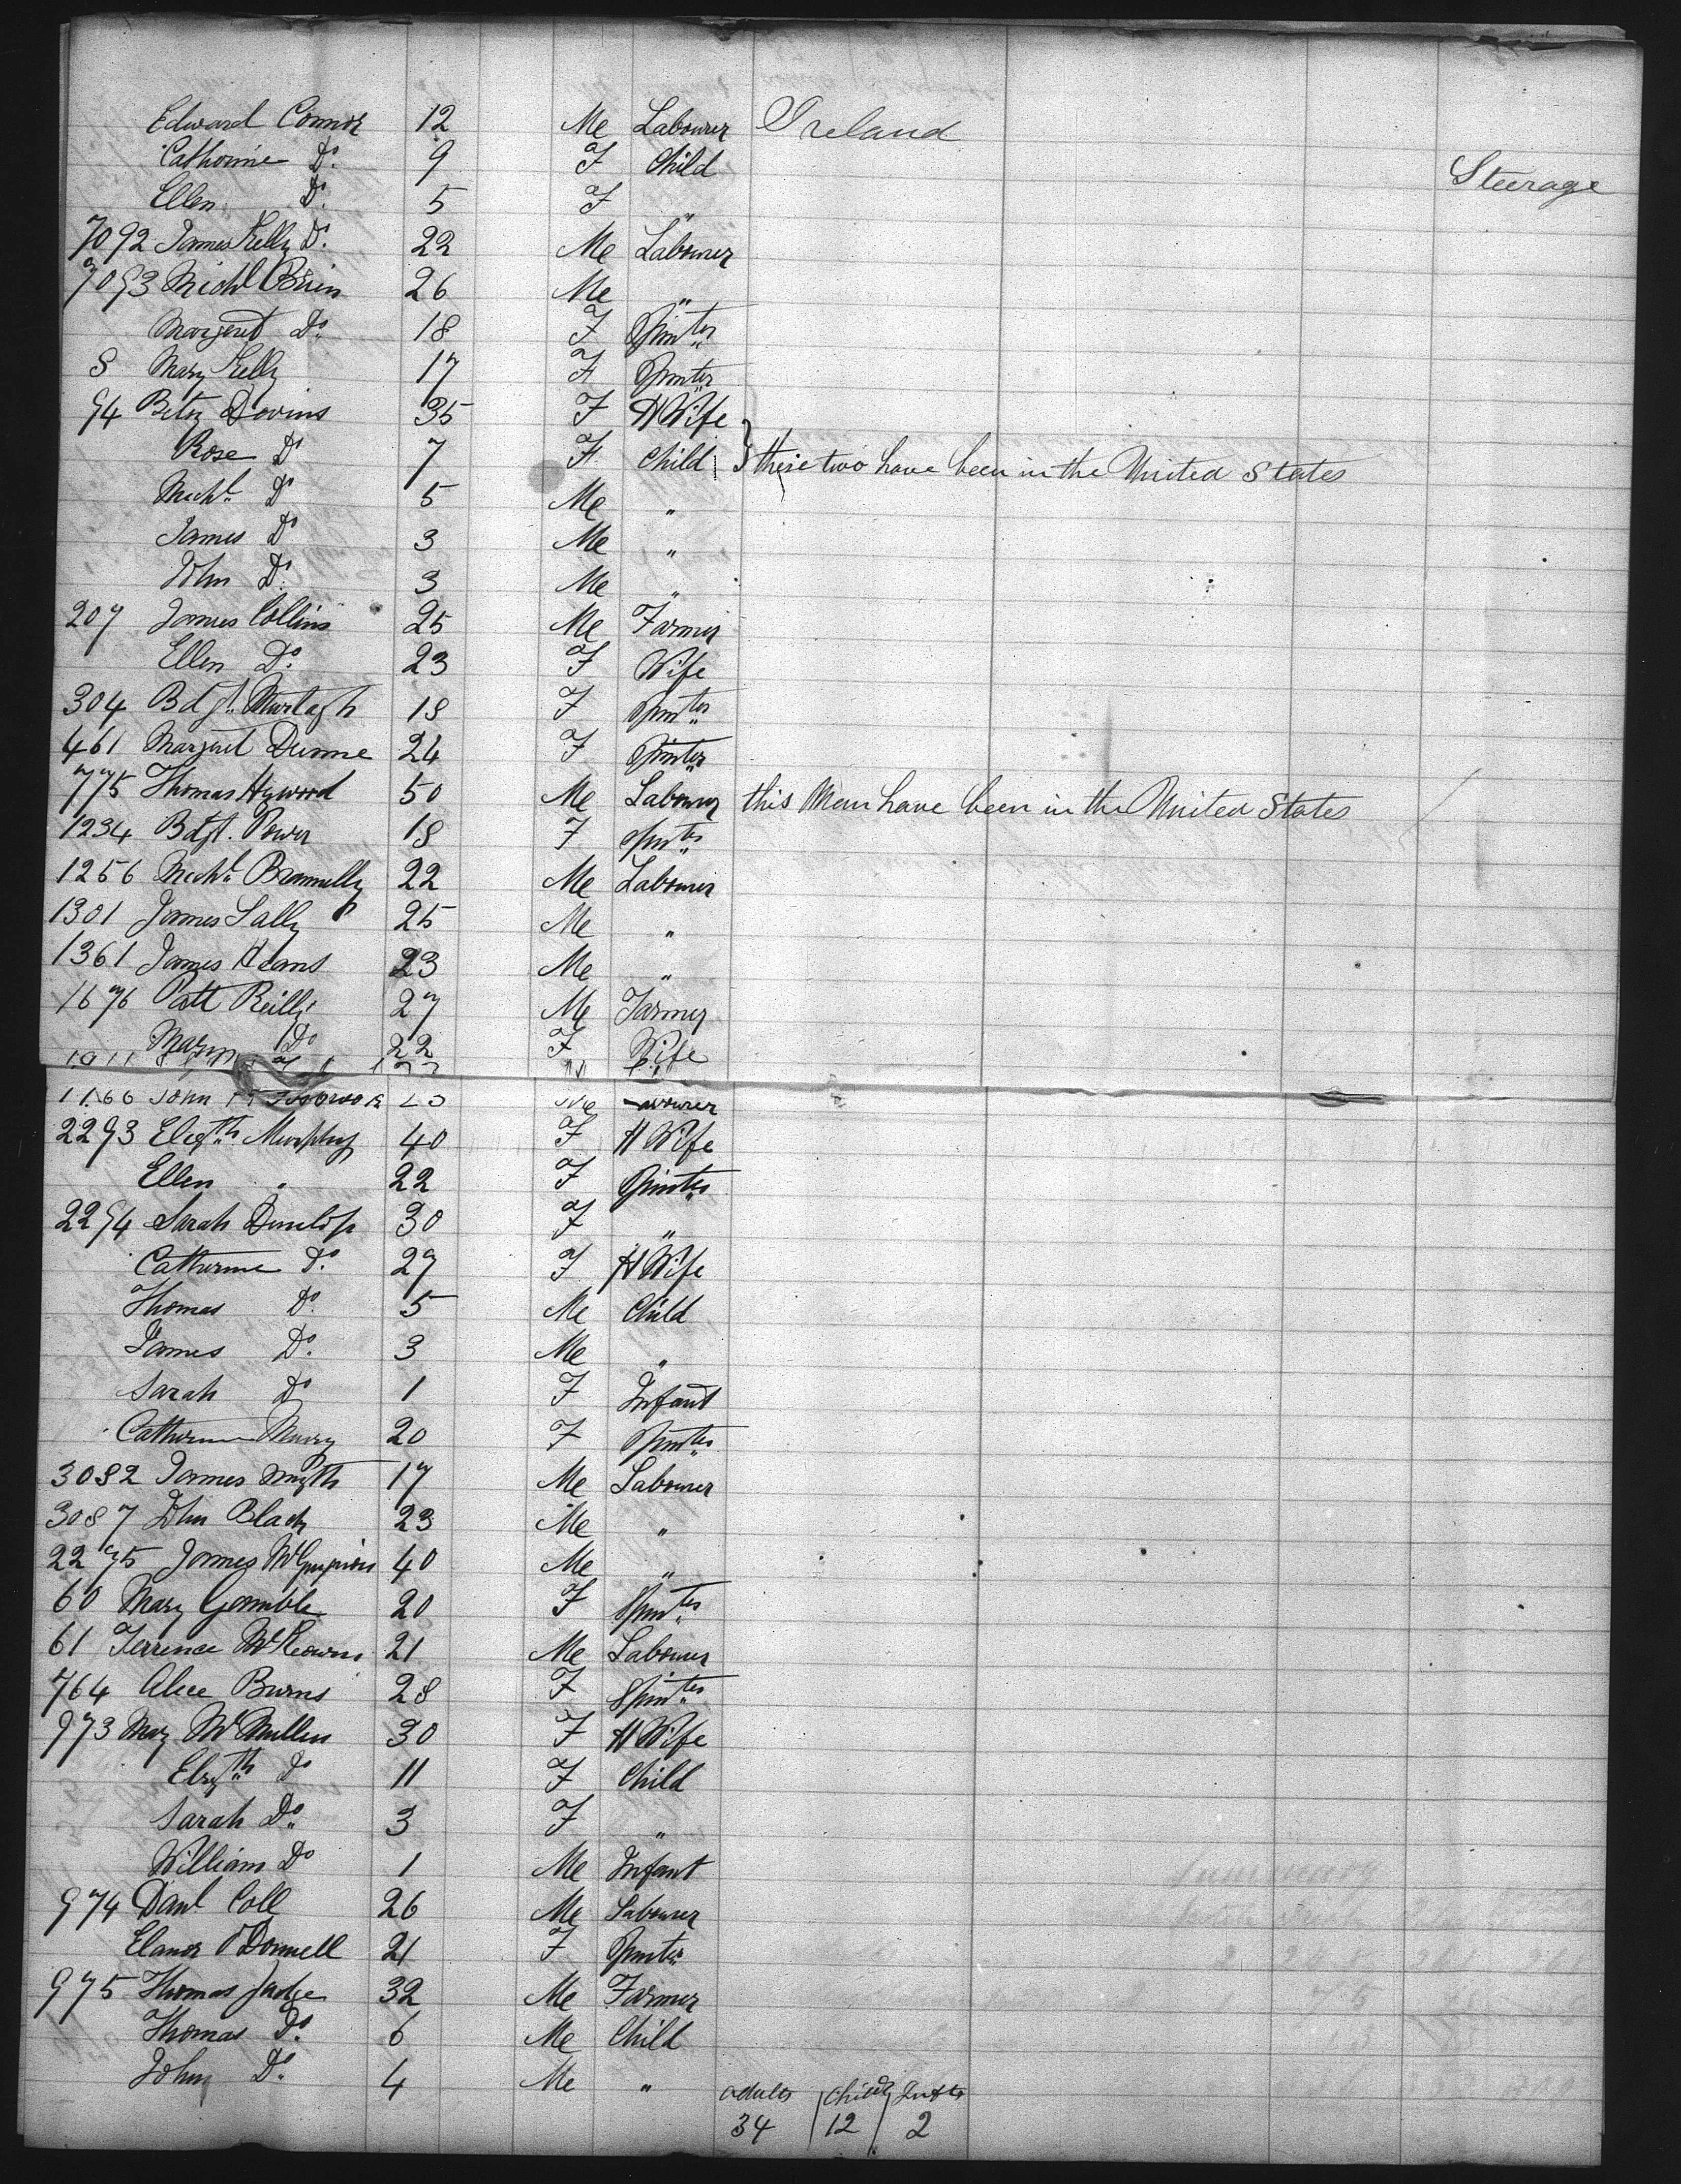 Edward Connor 12 Me Labourer Ireland
Catherine Do. 9 F Child Steerage
Ellen Do. 5 F "
7092 James Kelly Do. 22 Me Labourer
7093 Michl Brien 26 Me "
Margaret Do. 18 F Spinter
8 Mary Kelly 17 F Spinter
94 Betsy Dovins 35 F H Wife
Rose Do 7 F Child } these two have been in the United States
Michl Do 5 Me "
James Do 3 Me "
John Do. 3 Me "
207 James Collins 25 Me Farmer
Ellen Do. 23 F Wife
304 Bdgt. Murtagh 18 F Spinter
461 Margaret Dunne 24 F Spinter
775 Thomas Hywood 50 Me Labourer this Man have been in the United States
1234 Bdgt. Power 18 F Spinter
1256 Michl Brannelly 22 Me Labourer
1301 James Lally 25 Me "
1361 James Adams 23 Me "
1676 Patt Reilly 27 Me Farmer
Mary Do 22 F Wife
John Me
2293 Elizth Murphy 40 F H Wife
Ellen " 22 F Spinter
2294 Sarah Dunlop 30 F "
Catherine Do. 27 F H Wife
Thomas Do. 5 Me Child
James Do. 3 Me "
Sarah Do 1 F Infant
Catherine 20 F Spinter
3082 James Smyth 17 Me Labourer
3087 John Black 23 Me "
2275 James 40 Me "
60 Mary Gamble 20 F Spinter
61 Terrence McKeowns 21 Me Labourer
764 Alice Burns 28 F Spinter
973 Mary McMullen 30 F H Wife
Elizth Do 11 F Child
Sarah Do. 3 F "
William Do 1 Me Infant
974 Danl Coll 26 Me Labourer
Elanor O'Donnell 21 F Spinter
975 Thomas Judge 32 Me Farmer
Thomas Do. 6 Me Child
John Do. 4 Me "
adults Childn Infts
34 12 2